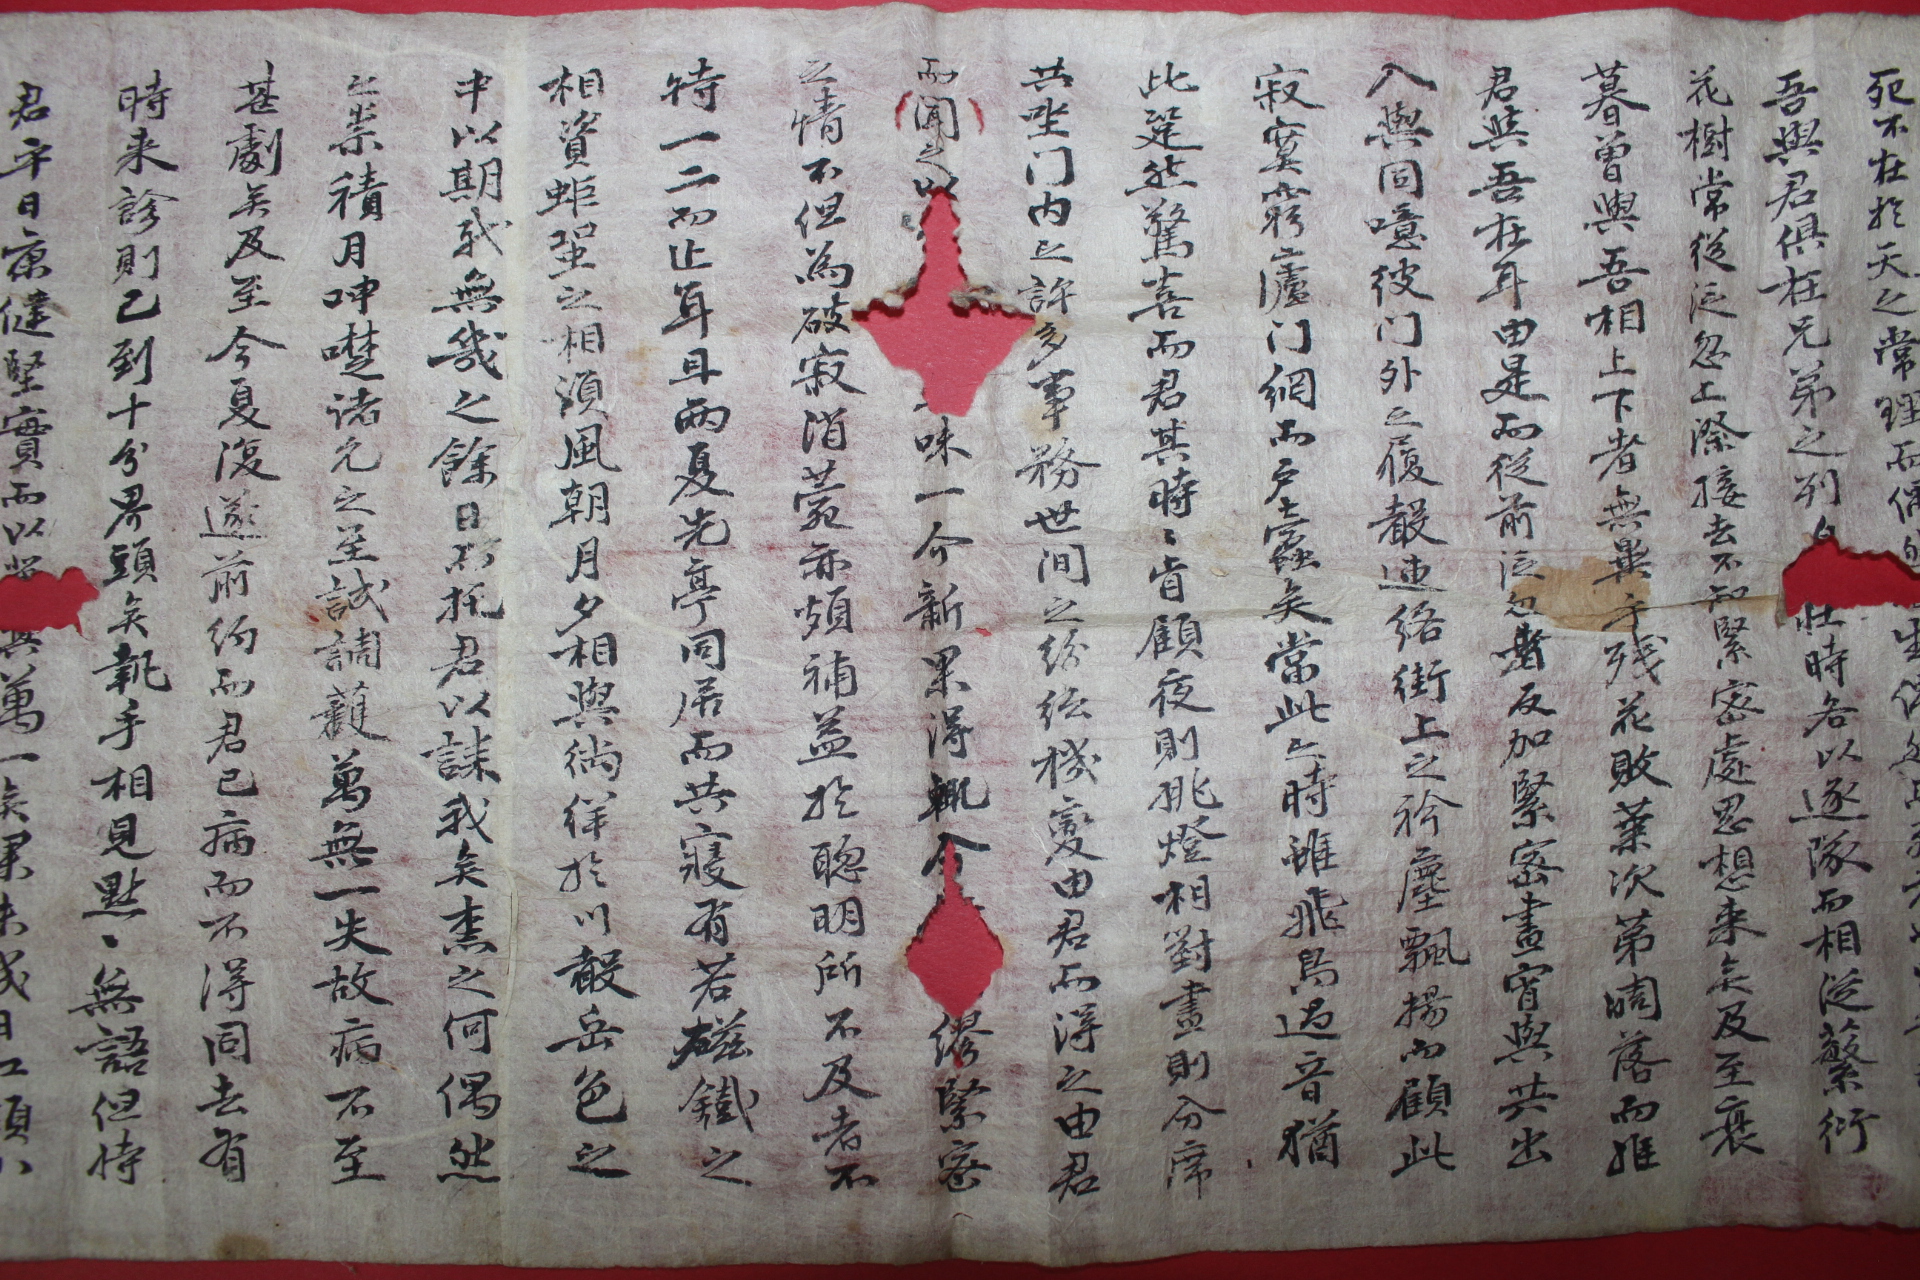 死不在於天之常理而偶
吾與君俱在兄弟之列 壯時各以逐隊而相從繁衍
花樹常從泛忽上際接去不知緊密處思想来矣及至衰
暮曾與吾相上下者無異 殘花敗葉次第凋落而唯
君與吾在耳由是而從前泛忽者反加緊密晝宵與共出
入與同噫彼門外之履聲連絡街上之衿塵飄揚而顧此
寂寞窮廬門網而戶土蟲矣當此之時雖飛鳥過音猶
此跫然驚喜而君其時時肯顧夜則挑燈相對晝則分席
共坐門內之許多事務世間之紛紜機變由君而得之由君
而聞之以 味一介新果得輒 繆緊密
之情不但為破寂消 亦頗補益於聰明所不及者不
特一二而止耳且兩夏先亭同居而共寢有若磁鐵之
相資蚷蛩之相須風朝月夕相與徜徉於川聲岳色之
中以期我無幾之餘日 托君以誄我矣柰之何偶然
之祟積月呻囈諸允之至誠調護萬無一失故病不至
甚劇矣及至今夏復遂前約而君已病而不得同去有
時来診則已到十分界頭矣執手相見點點無語但恃
君平日康健堅實而以 萬一矣果未幾日